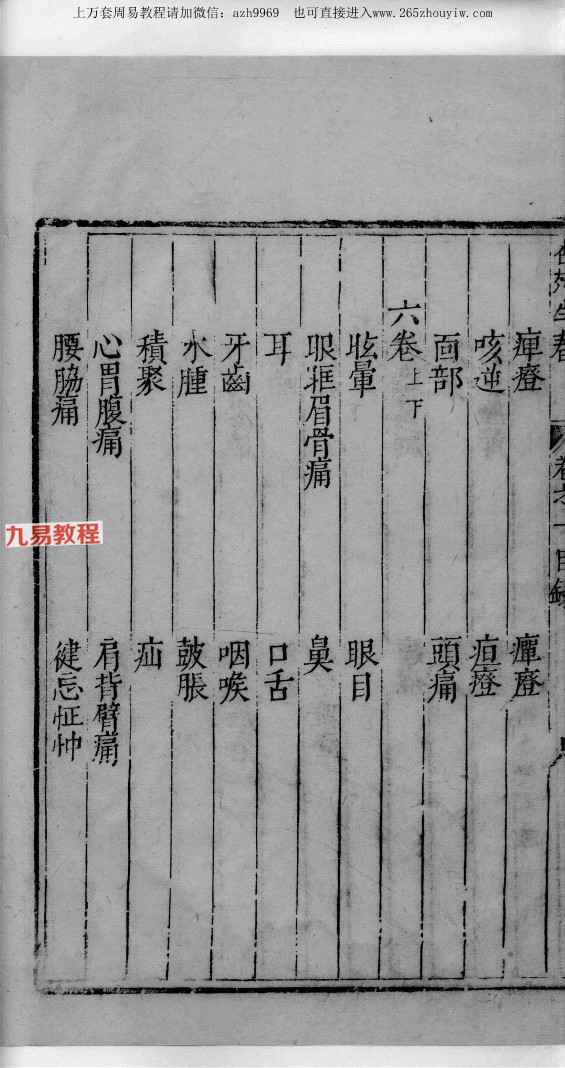 上万套周易教程请加微信：azh9969 也可直接进入www.265zhouyiw.com
痺證 癉證
咳逆 疸證
面部 頭痛
六卷上下
眩暈 眼目
眼眶眉骨痛 鼻
耳 口舌
牙齒 咽喉
水腫 鼓脹
積聚 疝
心胃腹痛 肩背臂痛
腰脇痛 健忘怔忡
九易教程